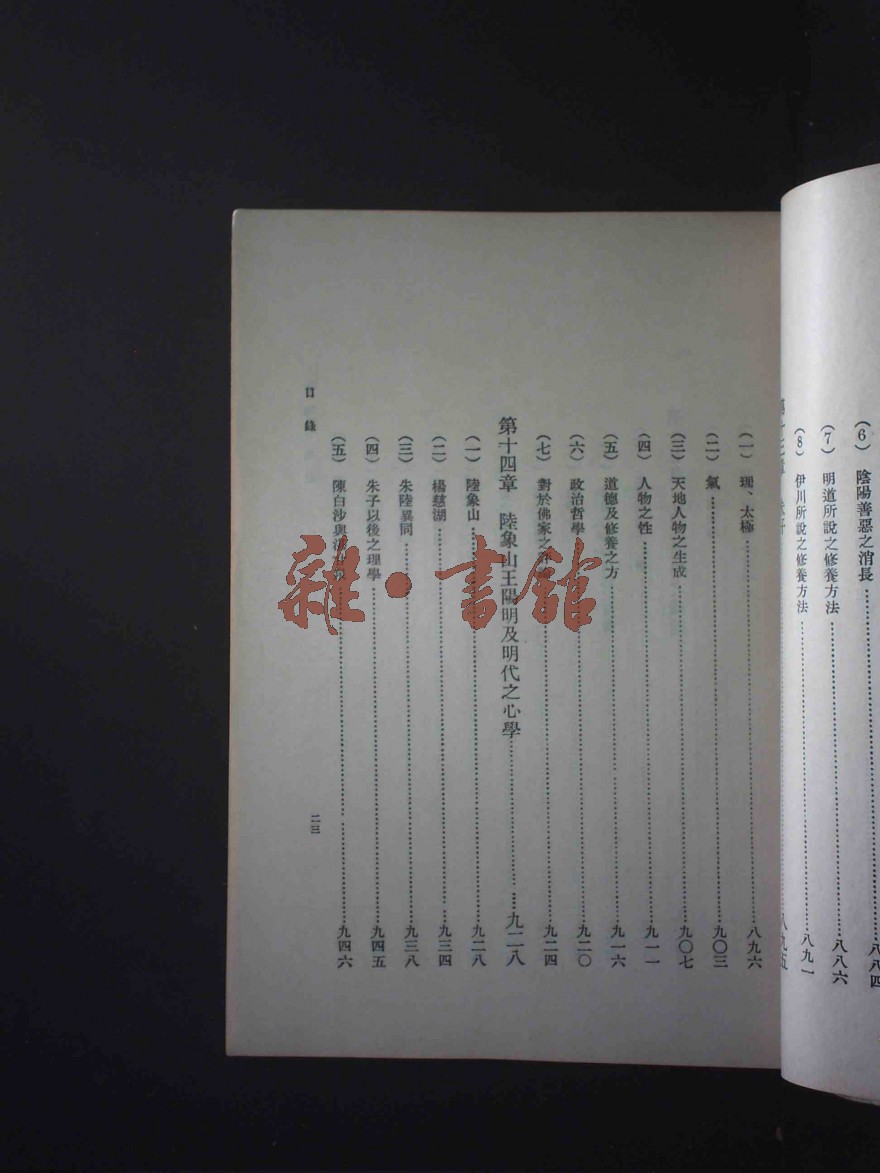 (6) 陰陽善惡之消長……八八四
(7) 明道所說之修養方法……八八六
(8) 伊川所說之修養方法……八九一
八九五
(一) 理、太極……八九六
(二) 氣……九〇三
(三) 天地人物之生成……九〇七
(四) 人物之性……九一一
(五) 道德及修養之方……九一六
(六) 政治哲學……九二〇
(七) 對於佛家之……九二四
第十四章 陸象山王陽明及明代之心學……九二八
(一) 陸象山……九二八
(二) 楊慈湖……九三四
(三) 朱陸異同……九三八
(四) 朱子以後之理學……九四五
(五) 陳白沙與……九四六
目錄
二三
雜·書館